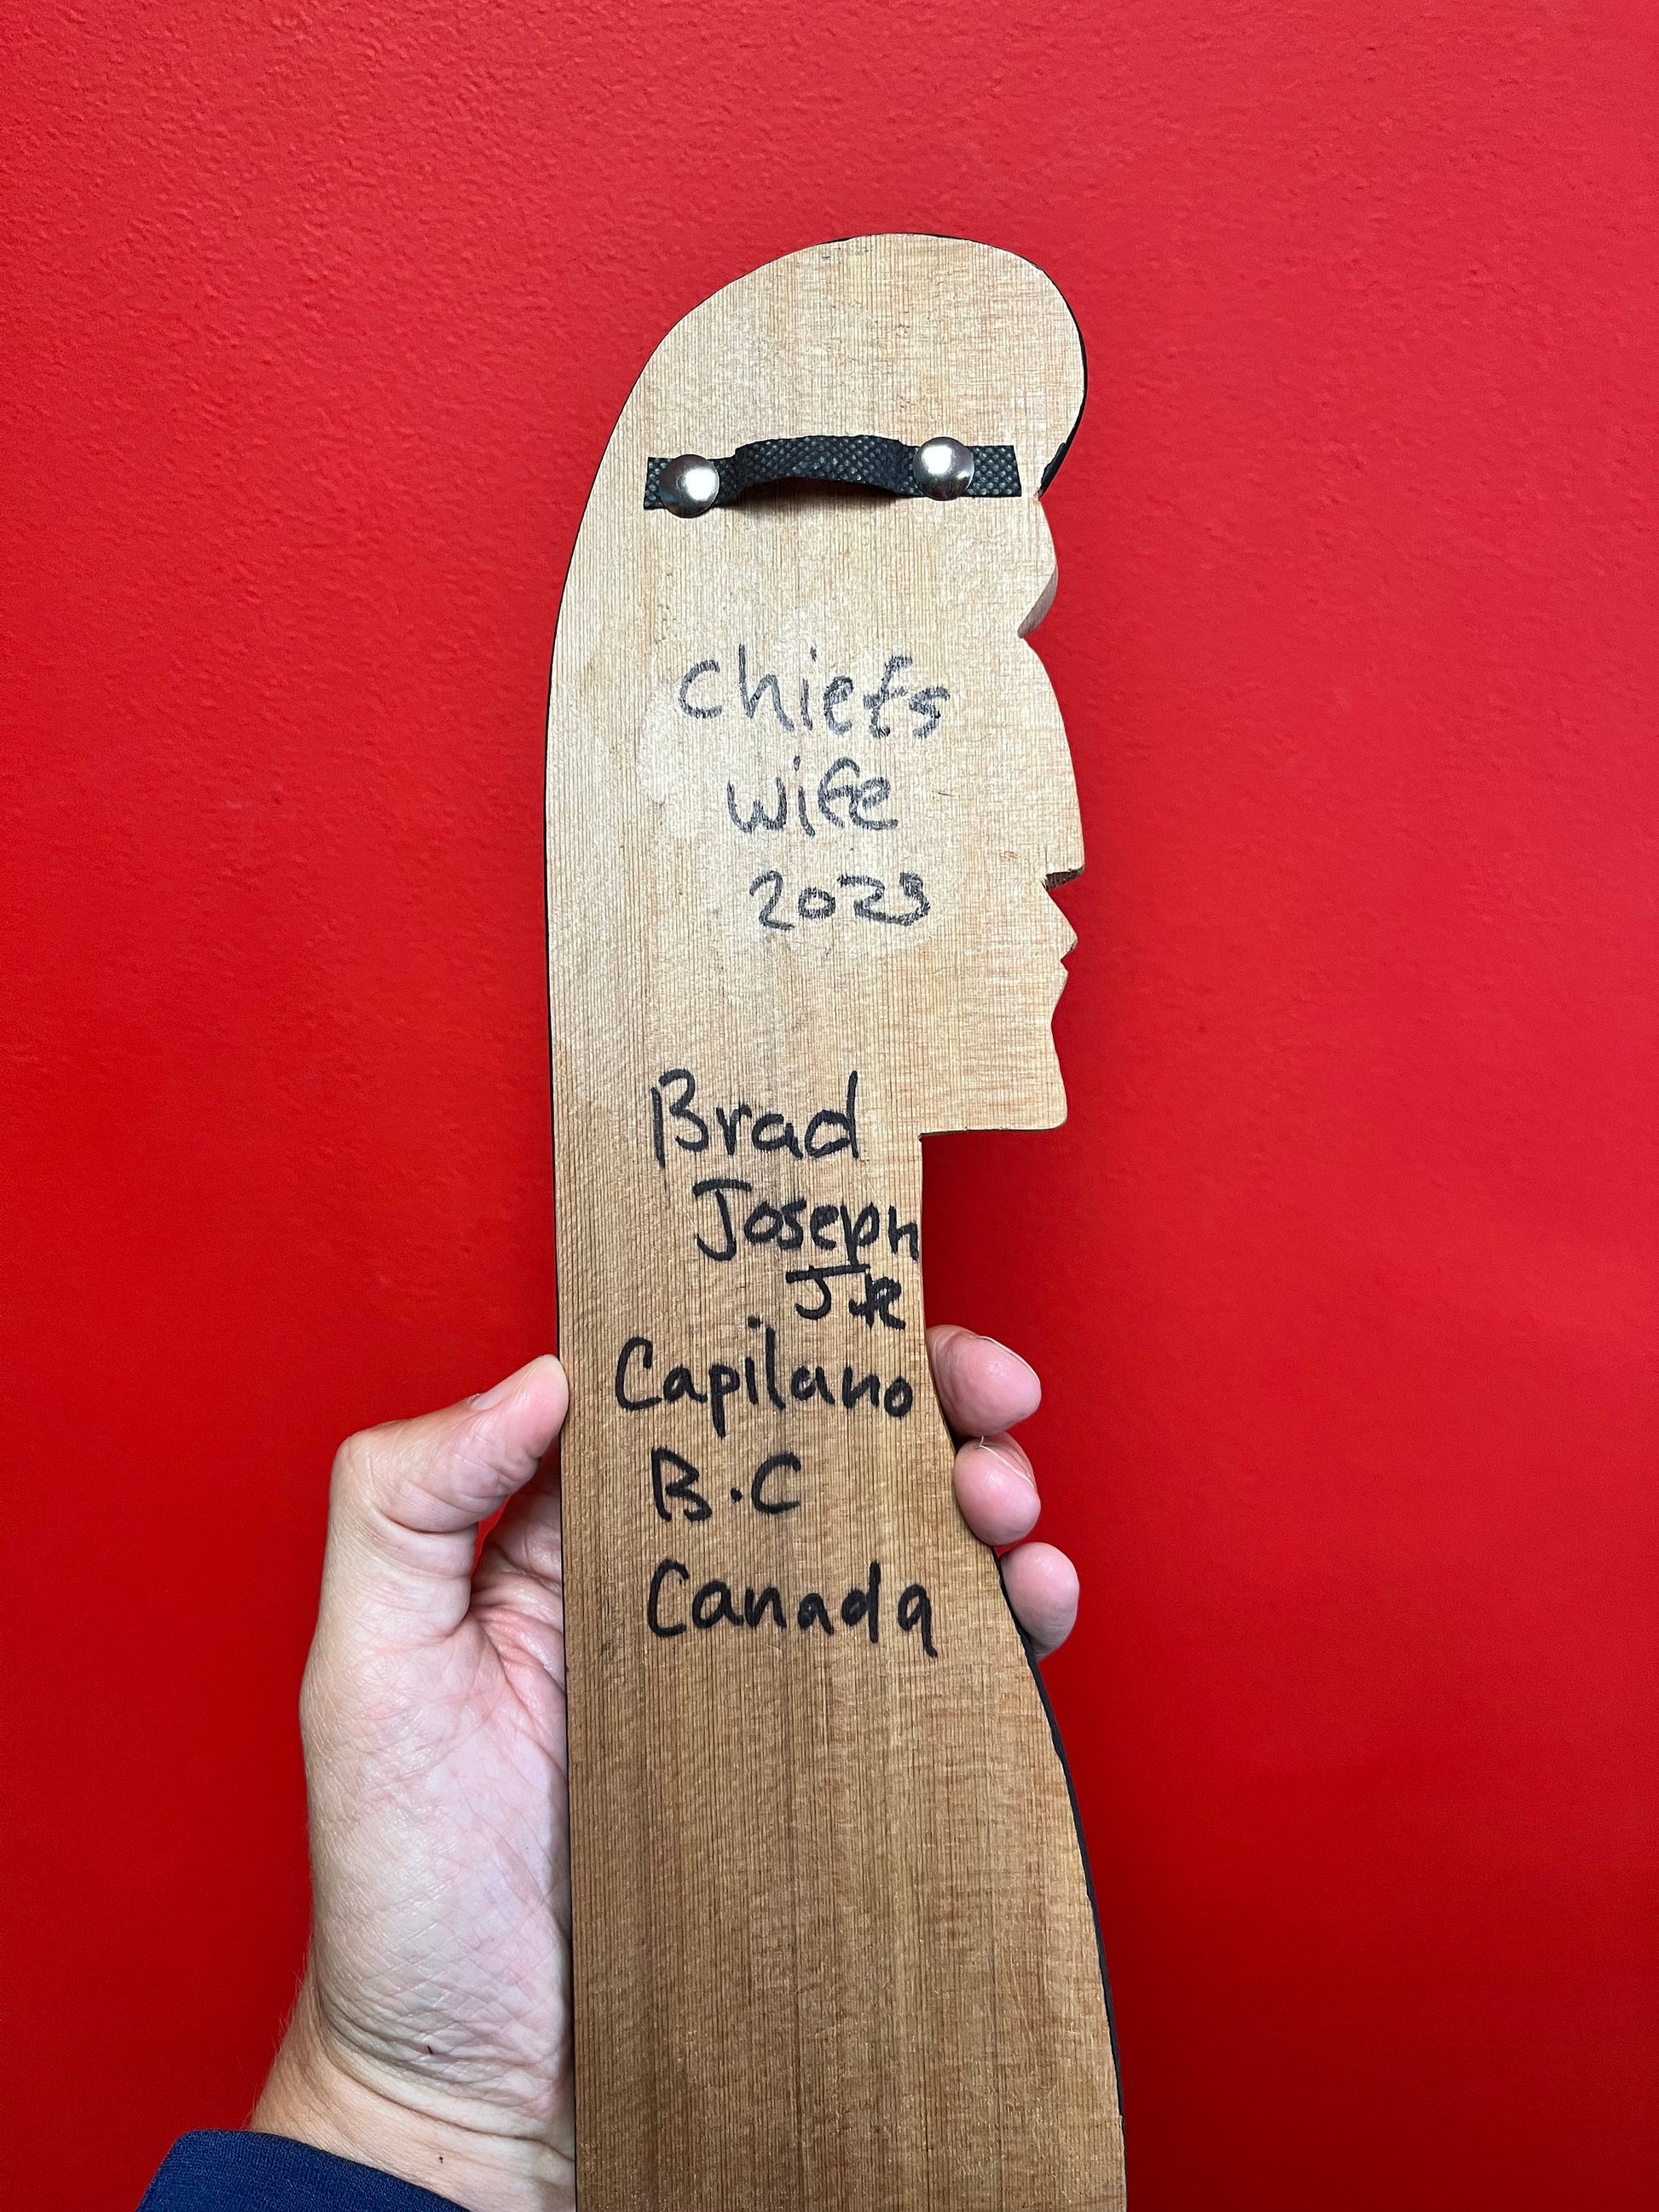 Chiefs
wife
2023
Brad
Joseph
JR
Capilano
B.C
Canada